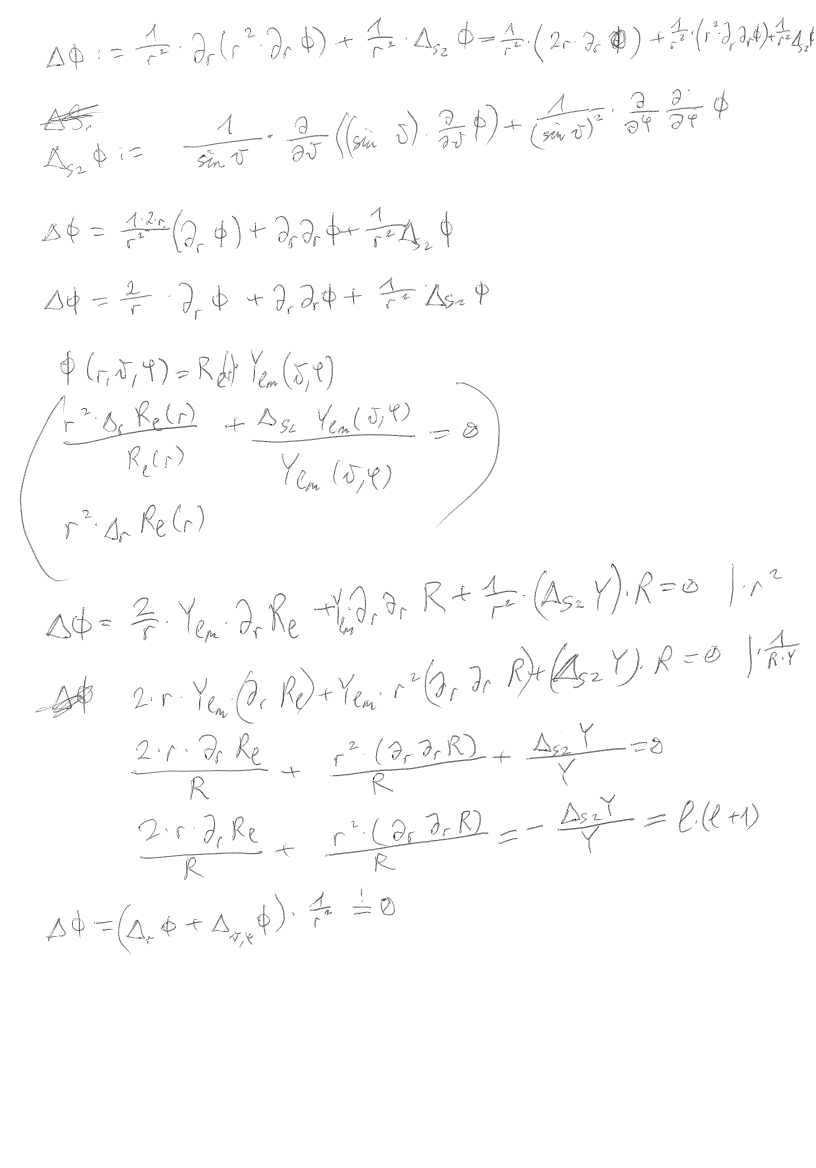 Δϕ := 1/r² · ∂_r (r² · ∂_r ϕ) + 1/r² · Δ_S2 ϕ = 1/r² · (2r · ∂_r ϕ) + 1/r² · (r² ∂_r ∂_r ϕ) + 1/r² Δ_S2 ϕ
Δ_S2 ϕ := 1/(sin ϑ) · ∂/∂ϑ ((sin ϑ) · ∂/∂ϑ ϕ) + 1/(sin ϑ)² · ∂/∂φ ∂/∂φ ϕ
Δϕ = (1·2·r)/r² (∂_r ϕ) + ∂_r ∂_r ϕ + 1/r² Δ_S2 ϕ
Δϕ = 2/r · ∂_r ϕ + ∂_r ∂_r ϕ + 1/r² Δ_S2 ϕ
ϕ(r,ϑ,φ) = R_l(r) Y_lm(ϑ,φ)
(r² · Δ_r R_l(r))/(R_l(r)) + (Δ_S2 Y_lm(ϑ,φ))/(Y_lm(ϑ,φ)) = 0
r² · Δ_r R_l(r)
Δϕ = 2/r · Y_lm · ∂_r R_l + Y_lm ∂_r ∂_r R + 1/r² · (Δ_S2 Y) · R = 0 | · r²
2 · r · Y_lm · (∂_r R_l) + Y_lm · r² (∂_r ∂_r R) + (Δ_S2 Y) · R = 0 | · 1/(R·Y)
(2 · r · ∂_r R_l)/R + (r² · (∂_r ∂_r R))/R + (Δ_S2 Y)/Y = 0
(2 · r · ∂_r R_l)/R + (r² · (∂_r ∂_r R))/R = - (Δ_S2 Y)/Y = l · (l + 1)
Δϕ = (Δ_r ϕ + Δ_ϑ,φ ϕ) · 1/r² =! 0